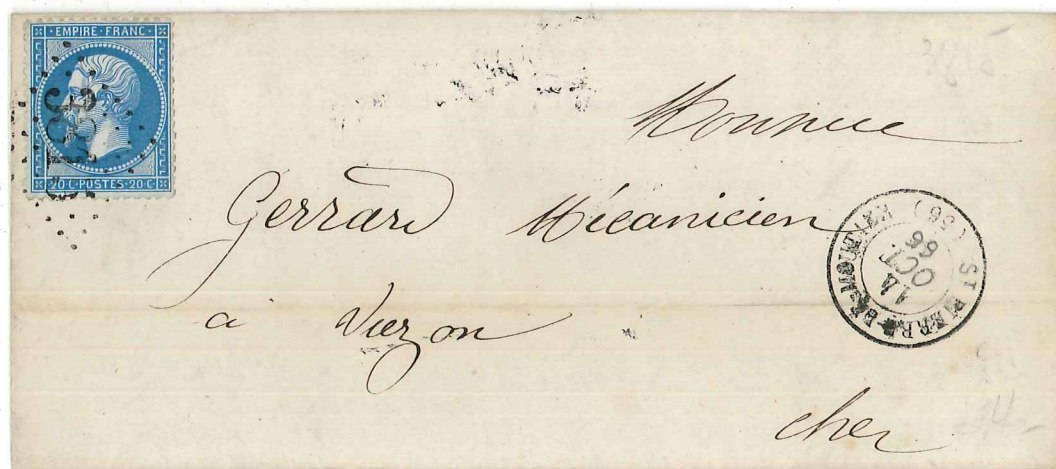 EMPIRE·FRANC·
20 C·POSTES·20 C
Monsieur
Gerrard Mécanicien
à Vierzon
cher
ST PIERRE-LE-MOUTIER (56)
14
OCT
66